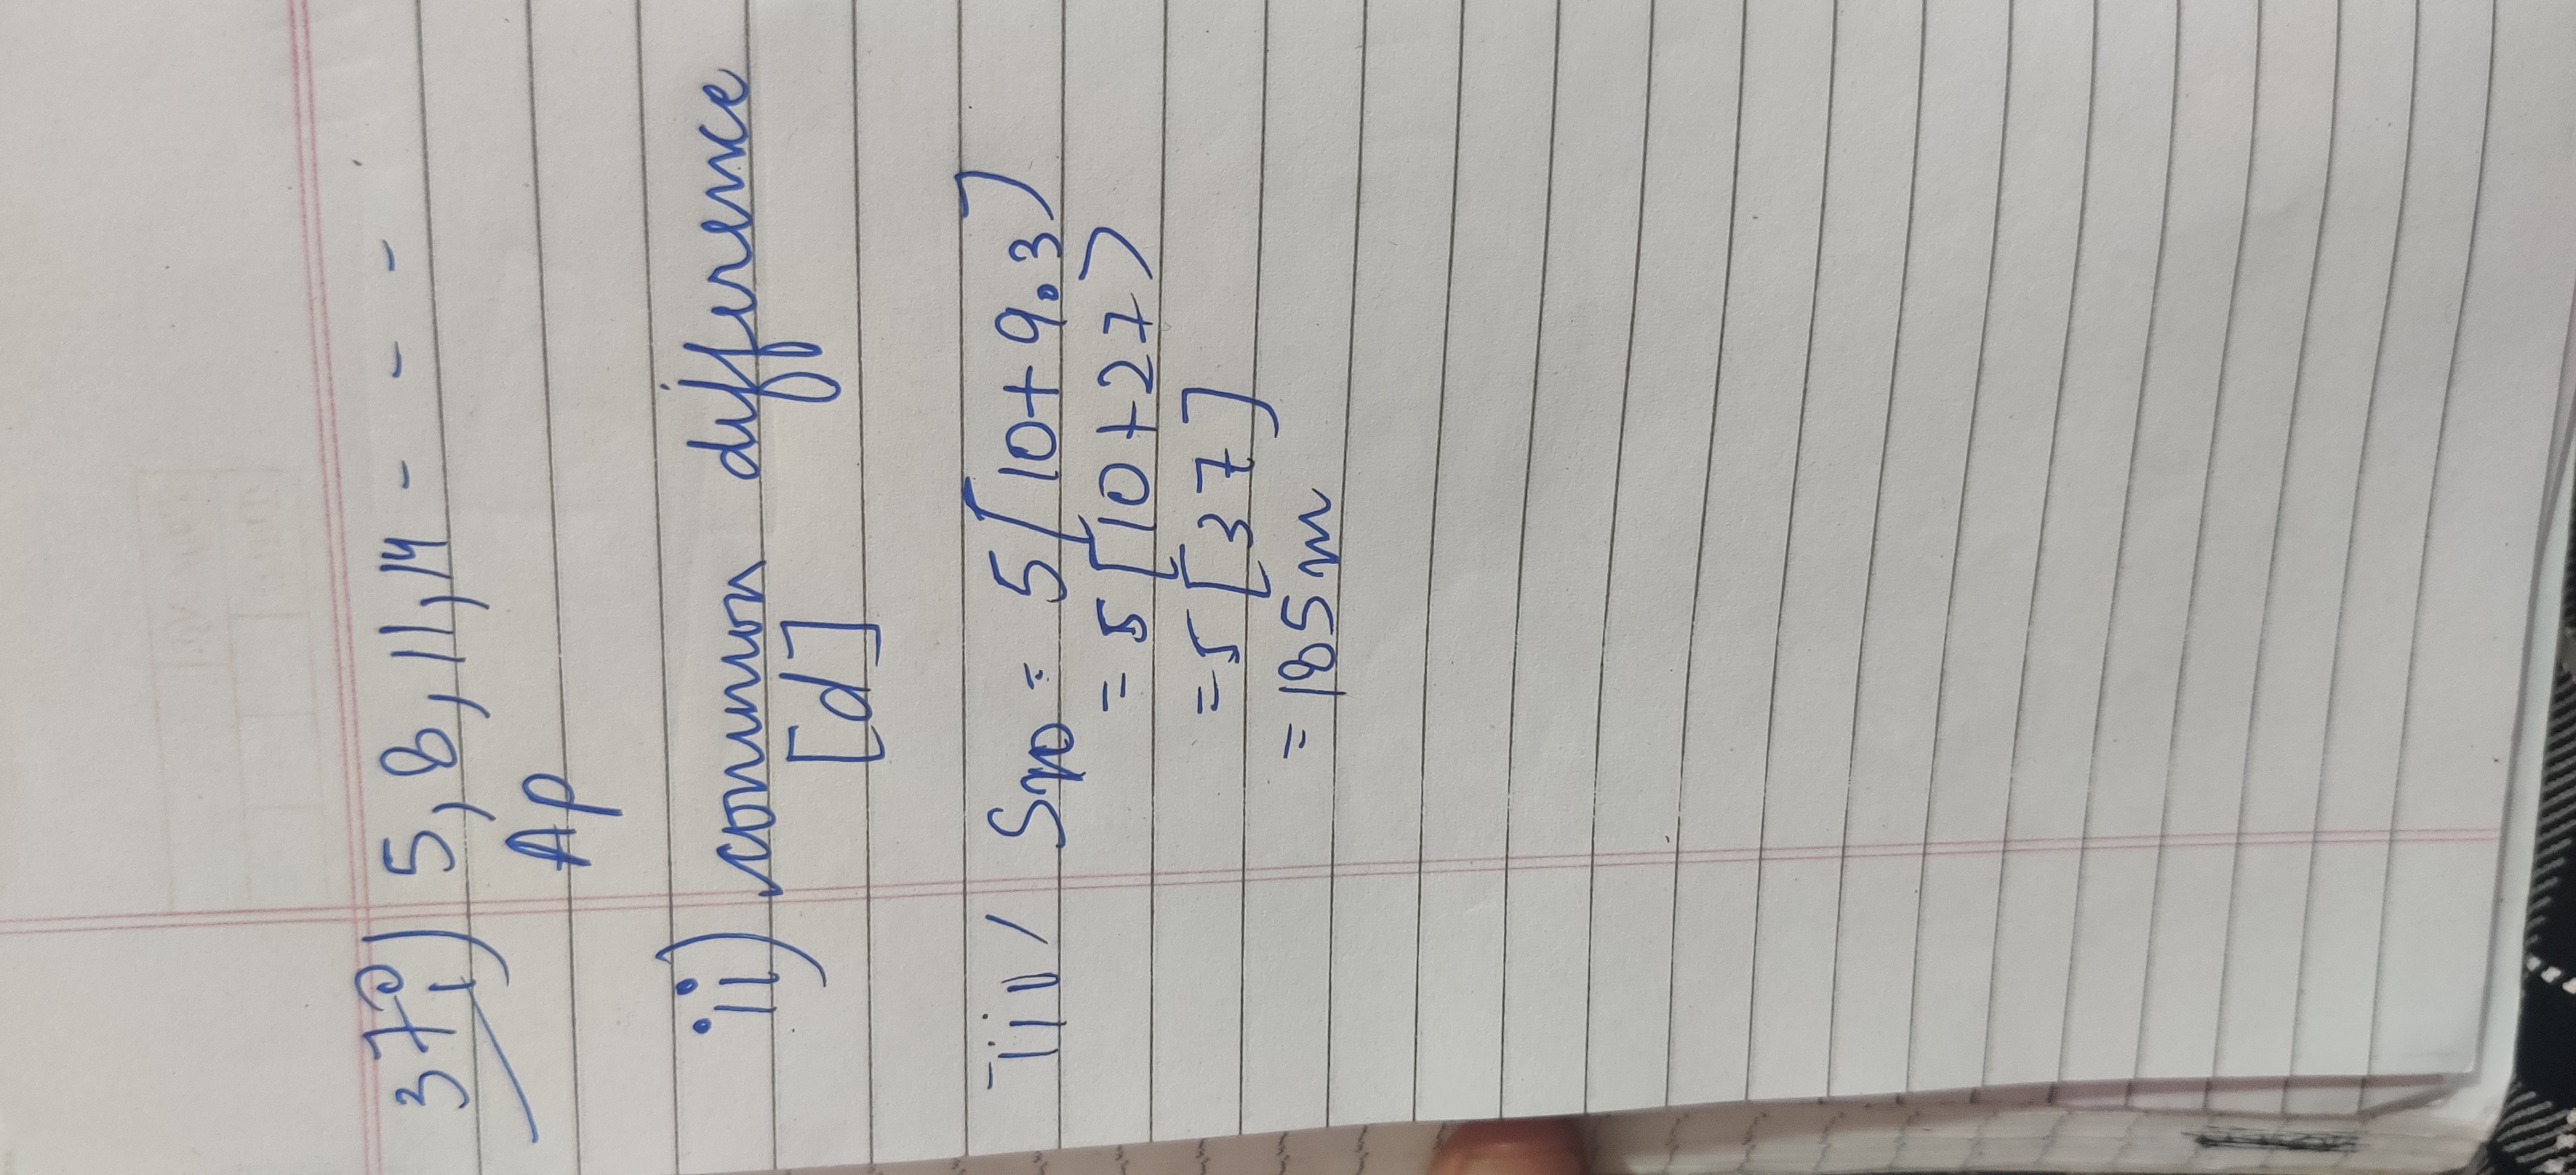 37) i) 5, 8, 11, 14 - - - -
AP
ii) common difference
[d]
iii) S10 = 5[10+9.3]
= 5[10+27]
= 5[37]
= 185m